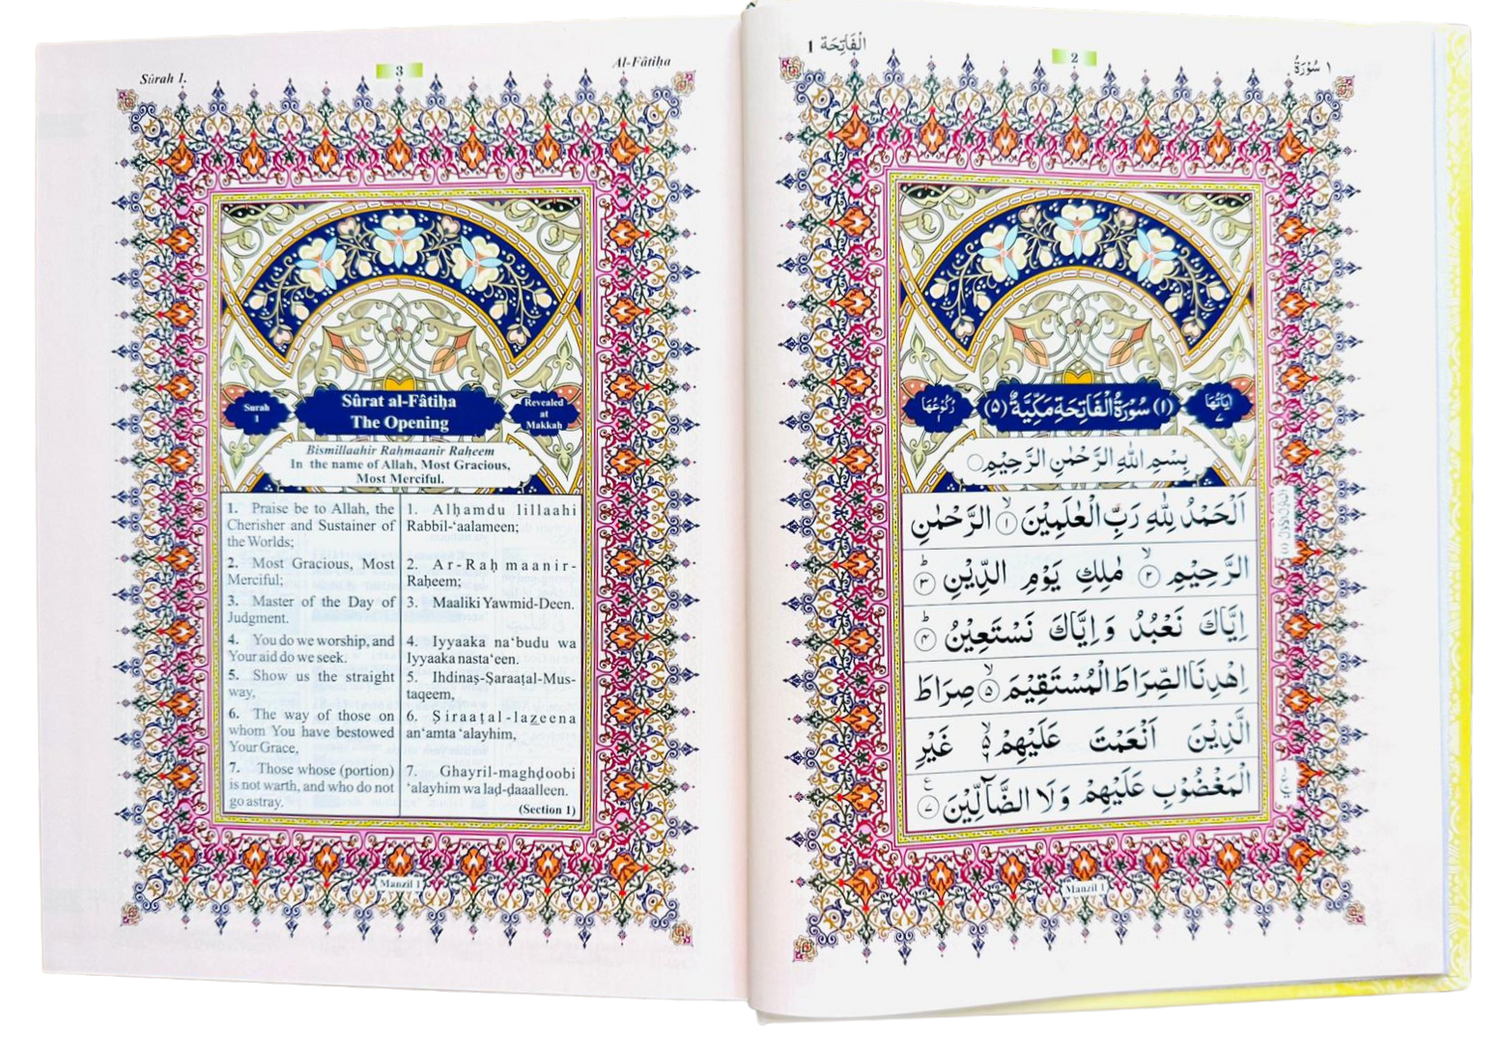 Sûrah 1.
3
Al-Fâtiḥa
Sûrat al-Fâtiḥa
The Opening
Surah
1
Revealed
at
Makkah
Bismillaahir Rahmaanir Raḥeem
In the name of Allah, Most Gracious,
Most Merciful.
1. Praise be to Allah, the
Cherisher and Sustainer of
the Worlds;
2. Most Gracious, Most
Merciful;
3. Master of the Day of
Judgment.
4. You do we worship, and
Your aid do we seek.
5. Show us the straight
way,
6. The way of those on
whom You have bestowed
Your Grace,
7. Those whose (portion)
is not warth, and who do not
go astray.
1. Alḥamdu lillaahi
Rabbil-‘aalameen;
2. Ar-Raḥmaanir-
Raḥeem;
3. Maaliki Yawmid-Deen.
4. Iyyaaka na‘budu wa
Iyyaaka nasta‘een.
5. Ihdinaṣ-Ṣaraaṭal-Mus-
taqeem,
6. Ṣiraaṭal-lazeena
an‘amta ‘alayhim,
7. Ghayril-maghḍoobi
‘alayhim wa laḍ-ḍaaalleen.
(Section 1)
Manzil 1
الْفَاتِحَة 1
2
سُوْرَةُ ١
اٰيَاتُهَا
٧
(١) سُوْرَةُ الْفَاتِحَةِ مَكِّيَّةٌ (٥)
رُكُوْعُهَا
١
بِسْمِ اللّٰهِ الرَّحْمٰنِ الرَّحِيْمِ
اَلْحَمْدُ لِلّٰهِ رَبِّ الْعٰلَمِيْنَ ۙ ١ الرَّحْمٰنِ
الرَّحِيْمِ ۙ ٢ مٰلِكِ يَوْمِ الدِّيْنِ ؕ ٣
اِيَّاكَ نَعْبُدُ وَاِيَّاكَ نَسْتَعِيْنُ ؕ ٤
اِهْدِنَا الصِّرَاطَ الْمُسْتَقِيْمَ ۙ ٥ صِرَاطَ
الَّذِيْنَ اَنْعَمْتَ عَلَيْهِمْ ۙ۬ غَيْرِ
الْمَغْضُوْبِ عَلَيْهِمْ وَلَا الضَّآلِّيْنَ ٧ ع
Manzil 1